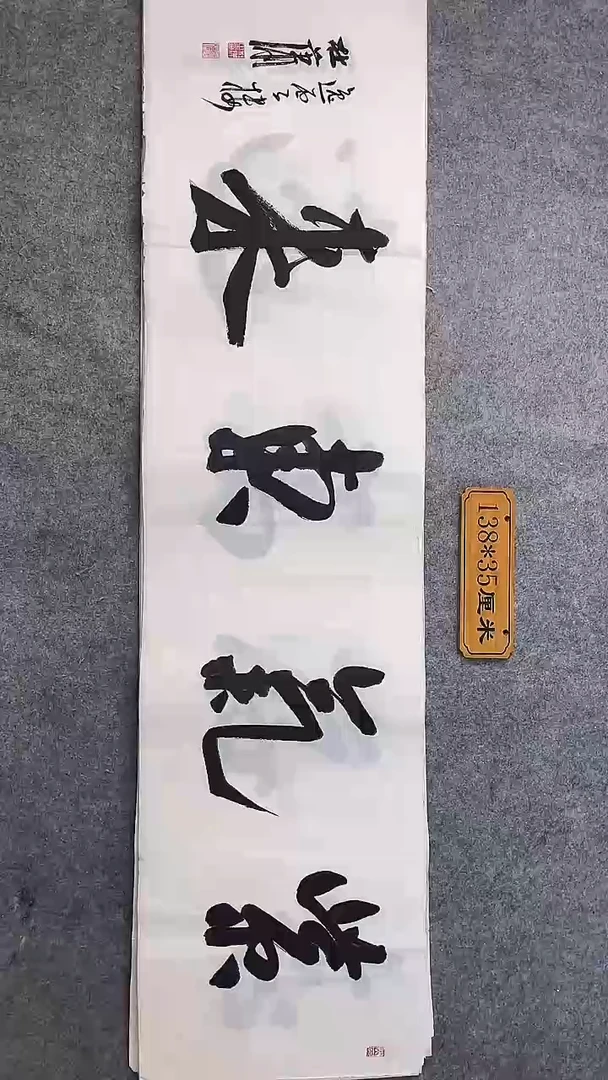 紫氣東来
138*35厘米